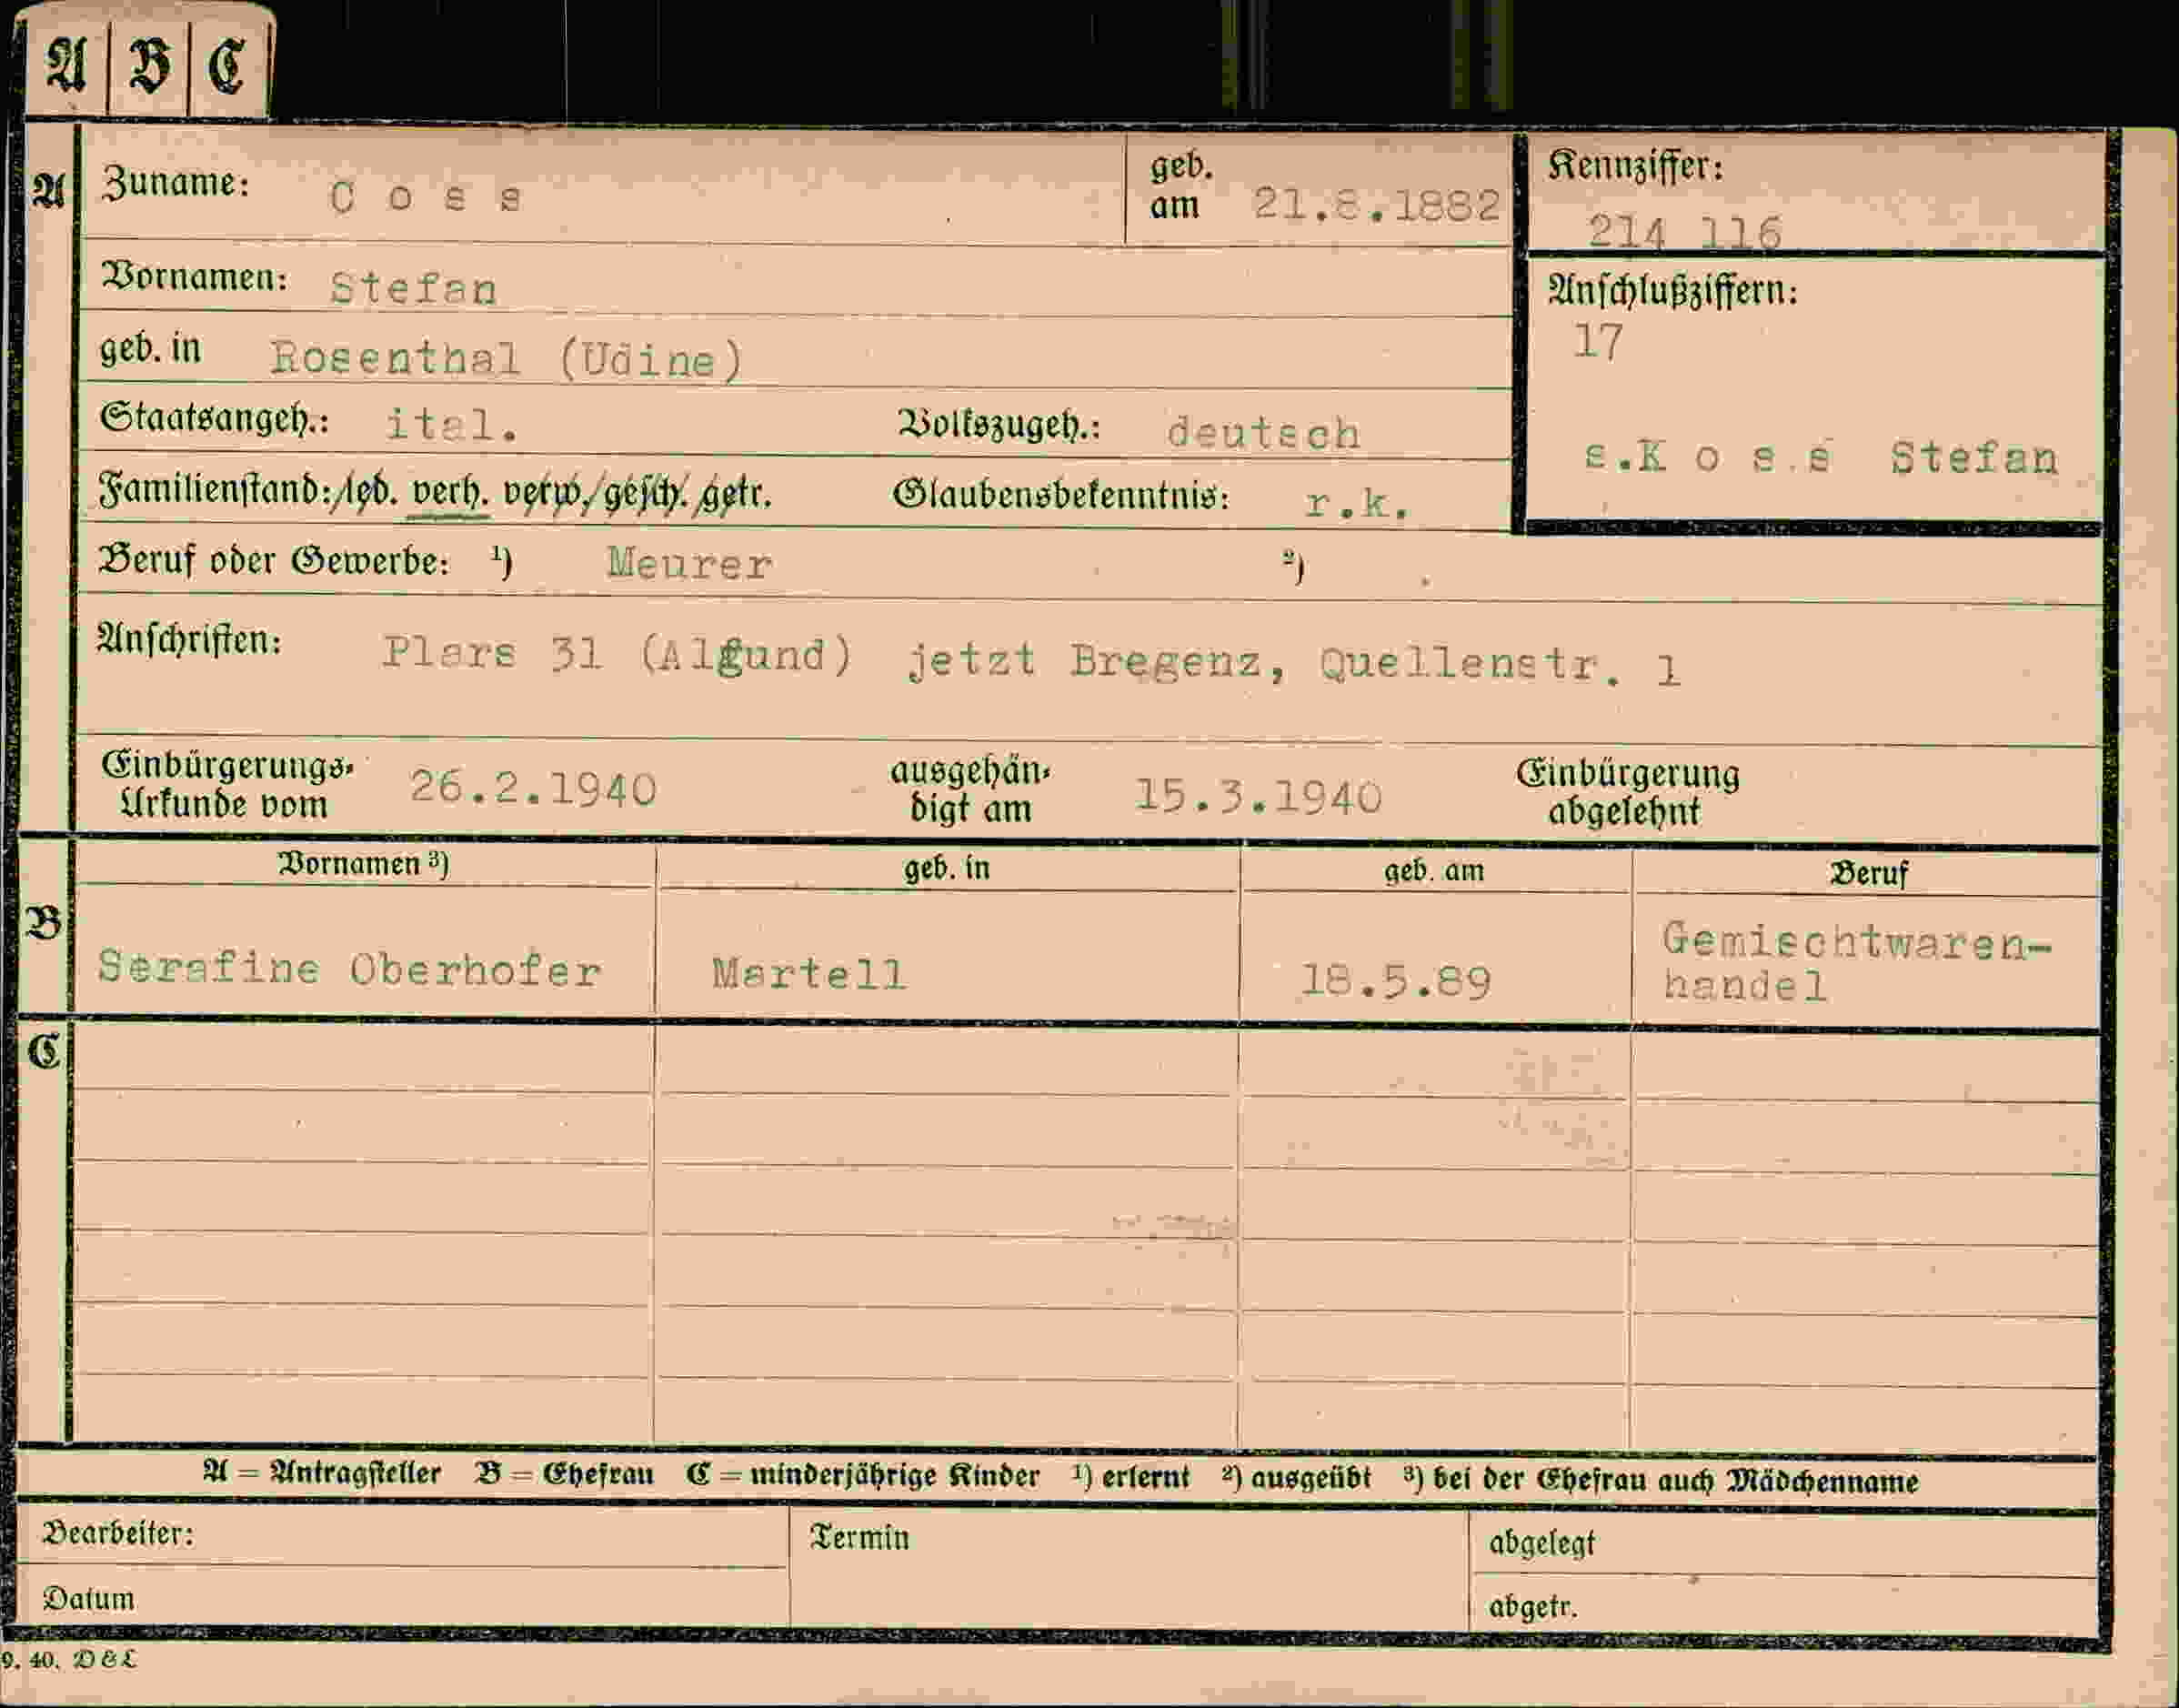 A B C
A Zuname: C o s s geb. am 21.8.1882 Kennziffer: 214 116
Vornamen: Stefan Anschlußziffern: 17
geb. in Rosenthal (Udine)
Staatsangeh.: ital. Volkszugeh.: deutsch s.K o s s Stefan
Familienstand: led. verh. verw. gesch. getr. Glaubensbekenntnis: r.k.
Beruf oder Gewerbe: ¹) Maurer ²)
Anschriften: Plars 31 (Algund) jetzt Bregenz, Quellenstr. 1
Einbürgerungs- ausgehän- Einbürgerung
Urkunde vom 26.2.1940 digt am 15.3.1940 abgelehnt
Vornamen ³) geb. in geb. am Beruf
B Serafine Oberhofer Martell 18.5.89 Gemischtwaren-
handel
C
A = Antragsteller B = Ehefrau C = minderjährige Kinder ¹) erlernt ²) ausgeübt ³) bei der Ehefrau auch Mädchenname
Bearbeiter: Termin abgelegt
Datum abgetr.
9. 40. D & L